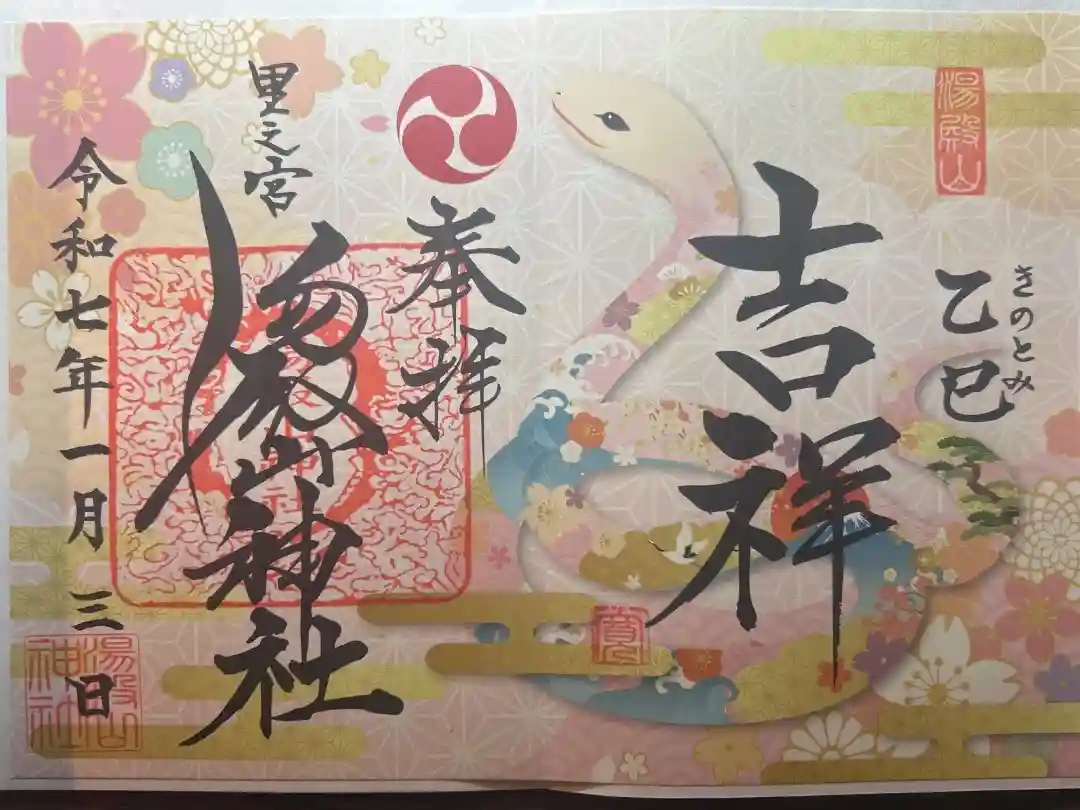 湯殿山
きのとみ
乙巳
吉祥
奉拝
里之宮
湯殿山神社
令和七年一月三日
湯殿山
神社